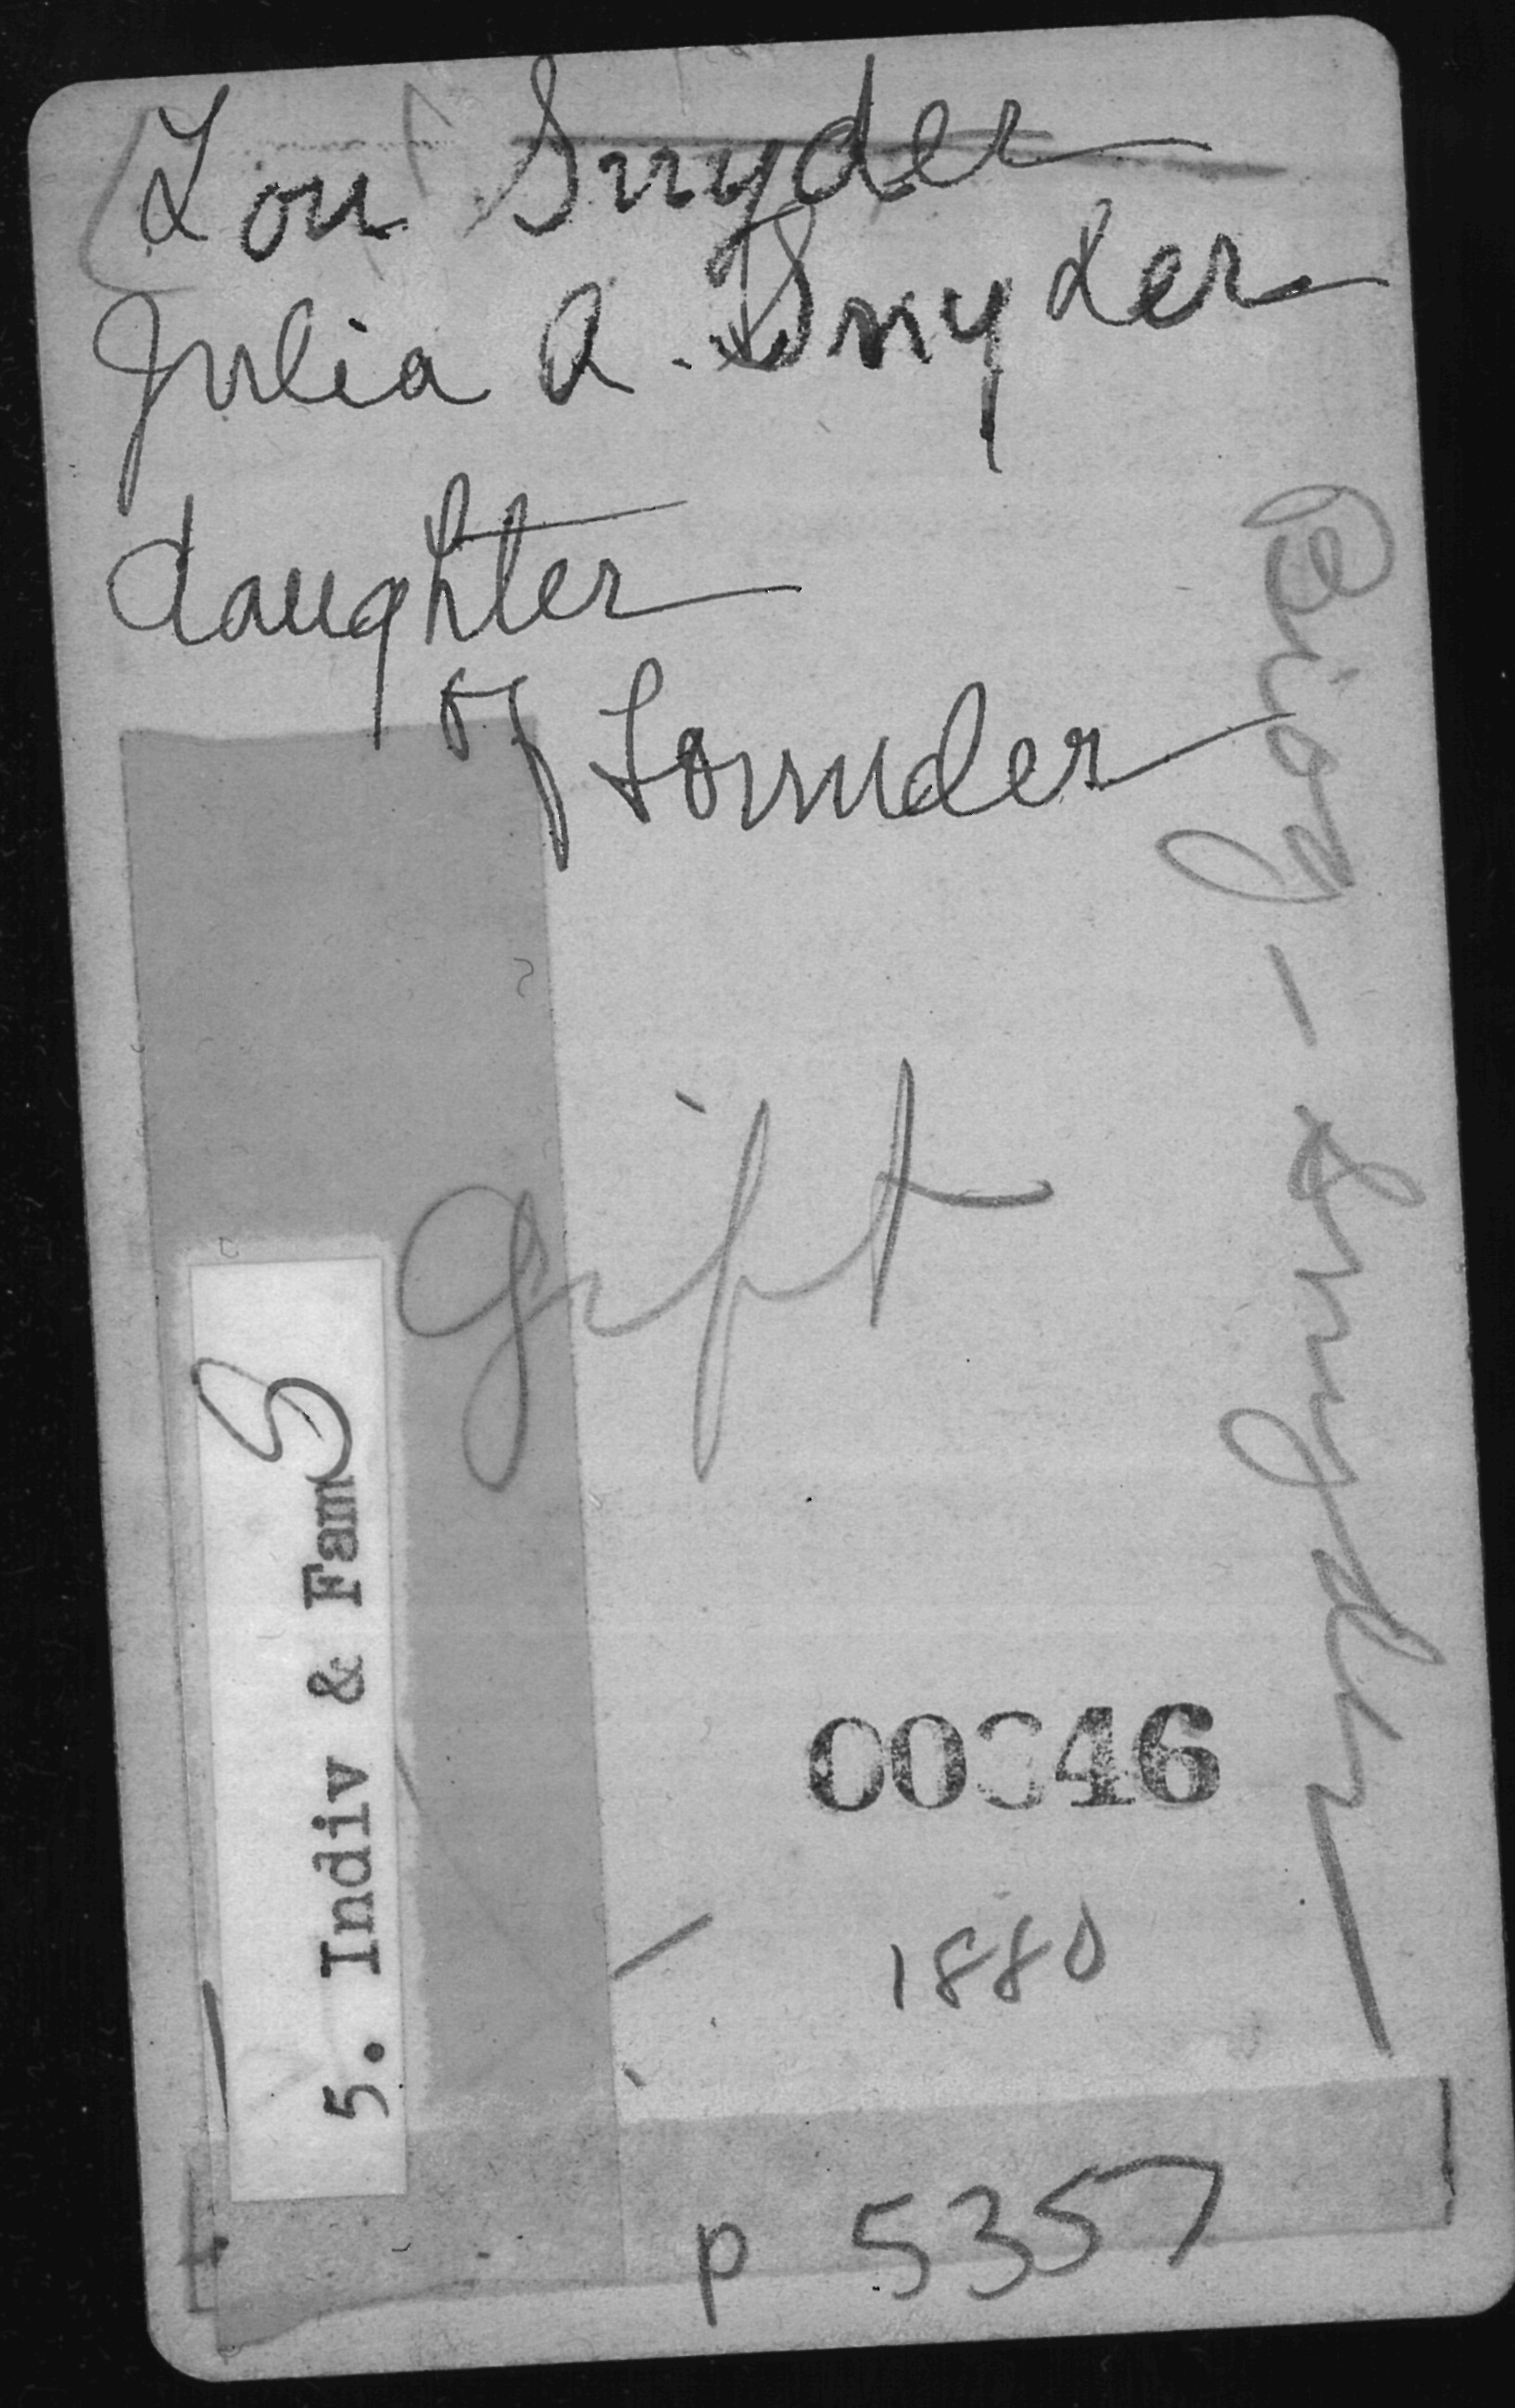 Lou Snyder
Julia A. Snyder
daughter
of Founder
Biog - Snyder
gift
5. Indiv & Fam S
00346
1880
p 5357